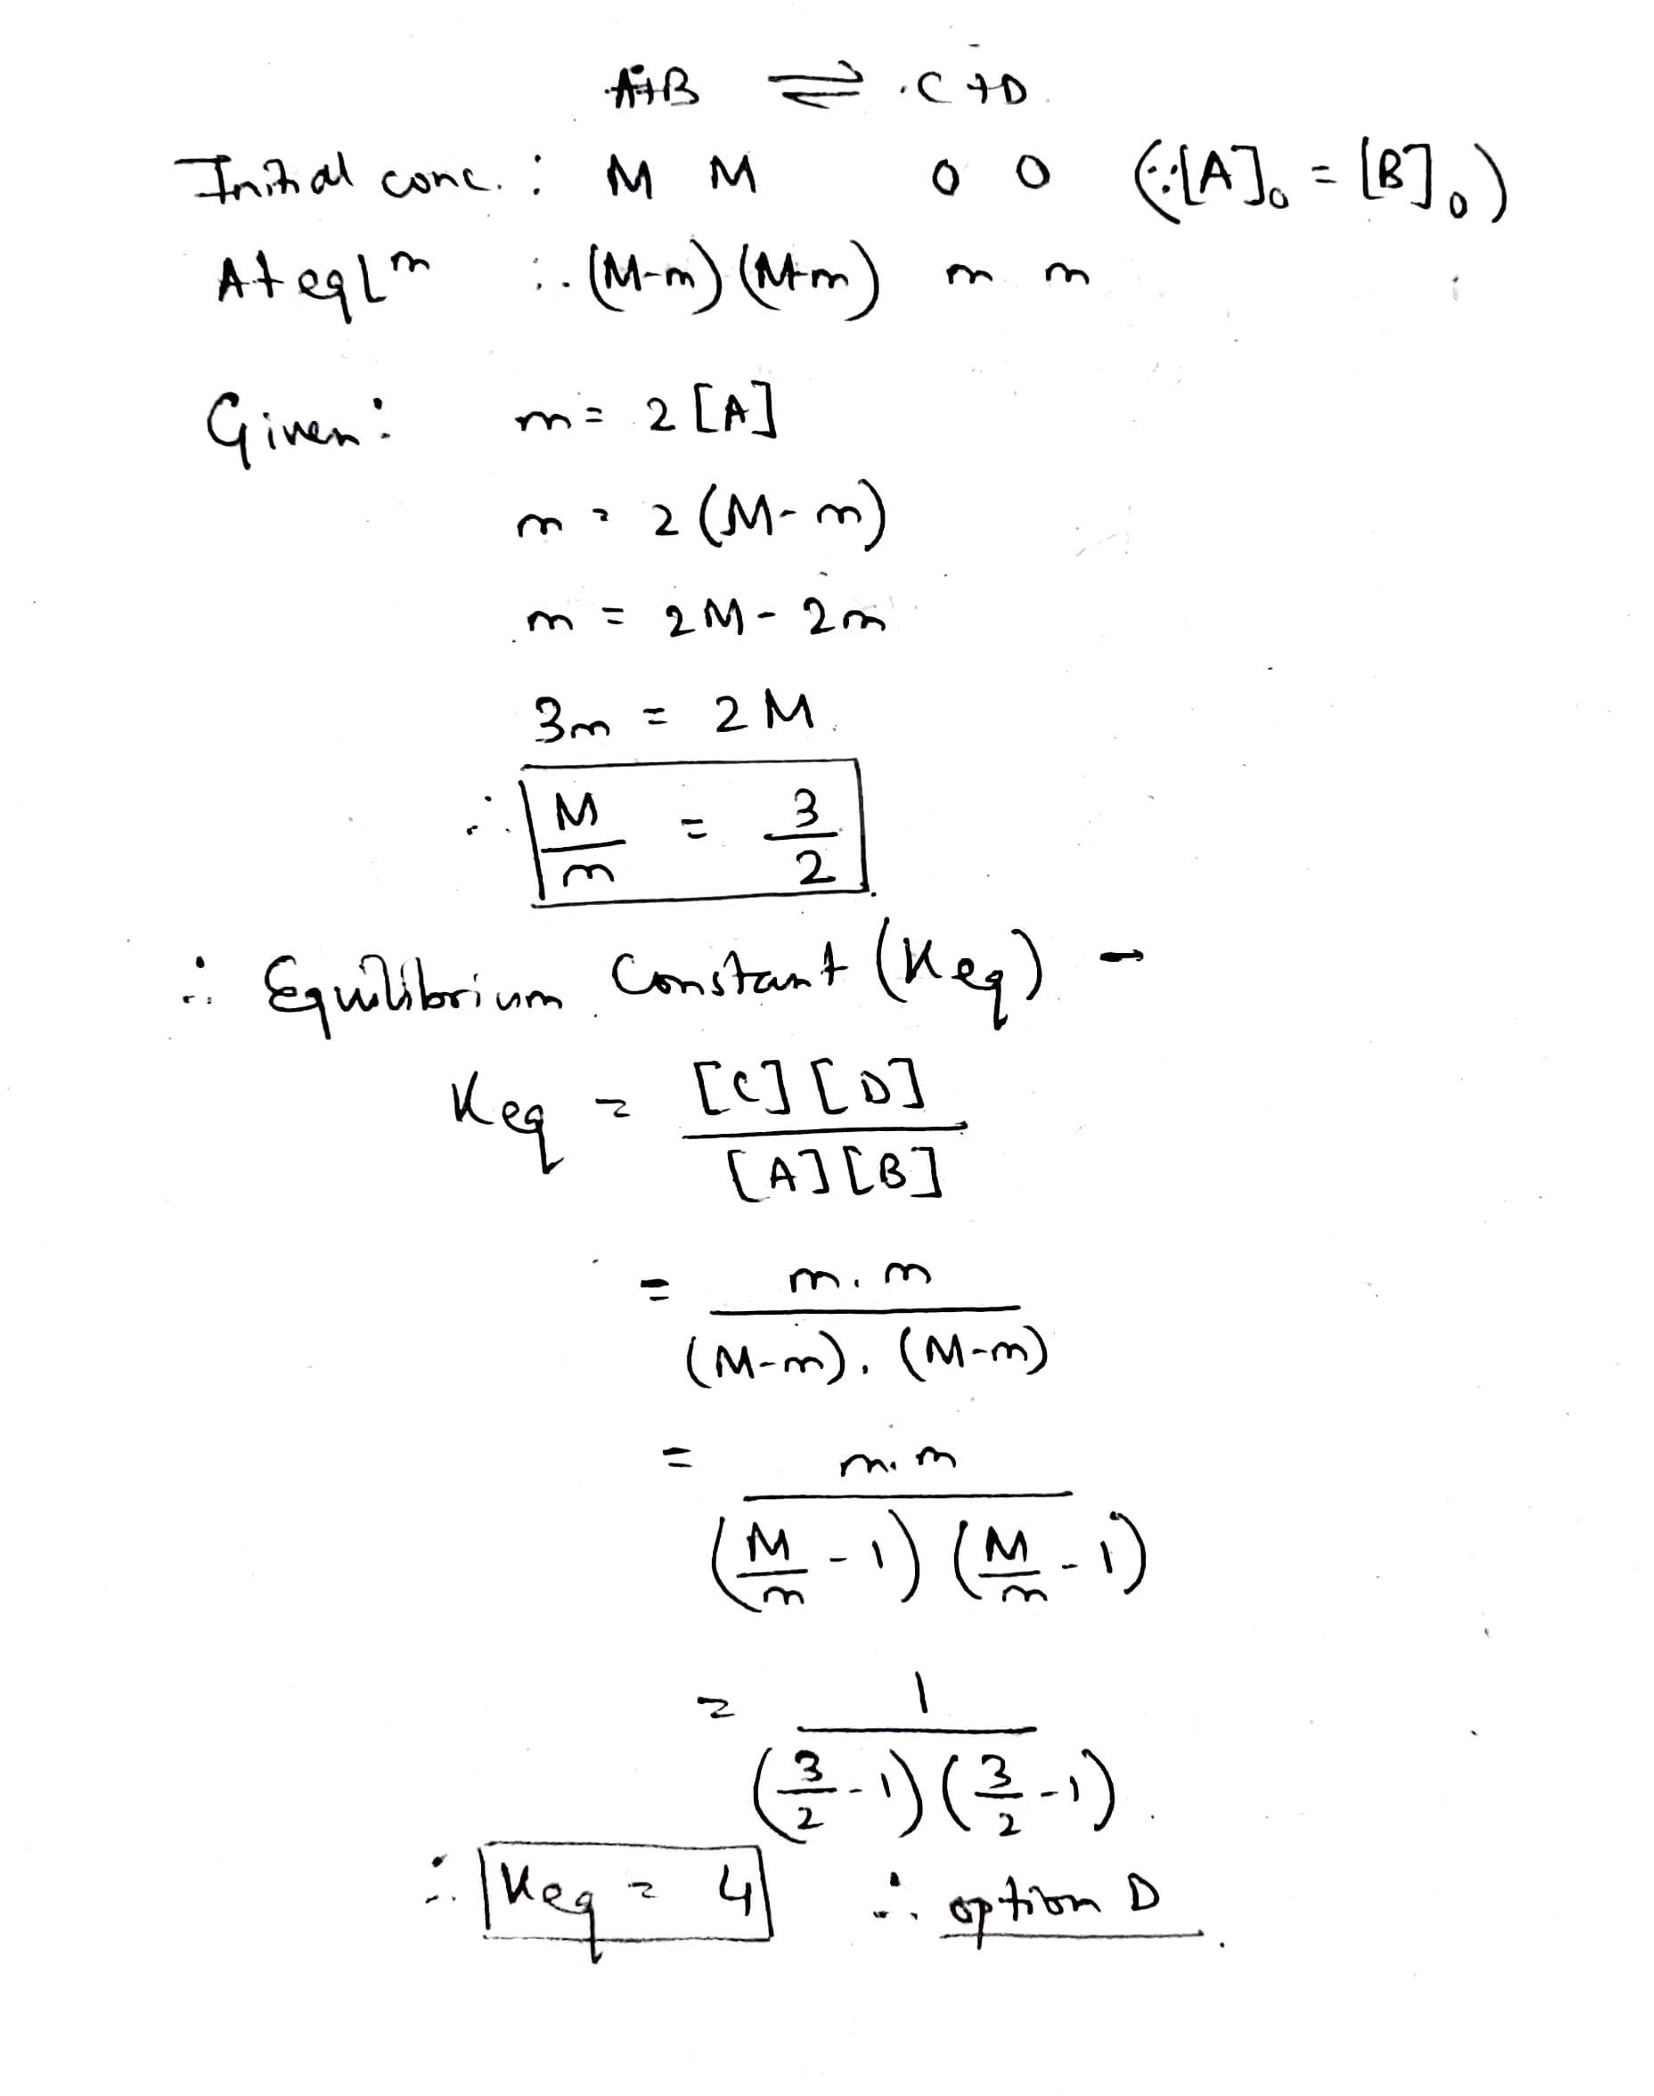 A+B ⇌ C+D
Initial conc. : M M 0 0 (∵[A]₀ = [B]₀)
At eqlᵐ : (M-m) (M-m) m m
Given: m = 2[A]
m = 2(M-m)
m = 2M - 2m
3m = 2M
∴ M/m = 3/2
∴ Equilibrium Constant (Keq) -
Keq = [C][D] / [A][B]
= m.m / (M-m).(M-m)
= m.m / (M/m - 1)(M/m - 1)
= 1 / (3/2 - 1)(3/2 - 1)
∴ Keq = 4 ∴ option D.